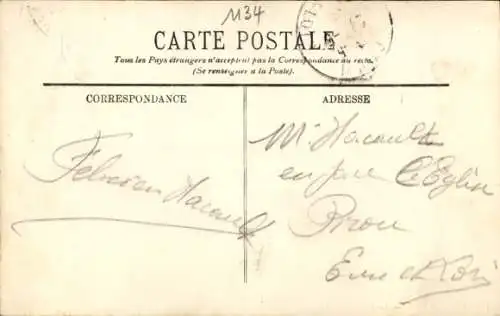 1134
CARTE POSTALE
Tous les Pays étrangers n'acceptent pas la Correspondance au recto.
(Se renseigner à la Poste).
CORRESPONDANCE
ADRESSE
Felicien Hacault
Mr Hacault
en face l'Eglise
Brou
Eure et Loir